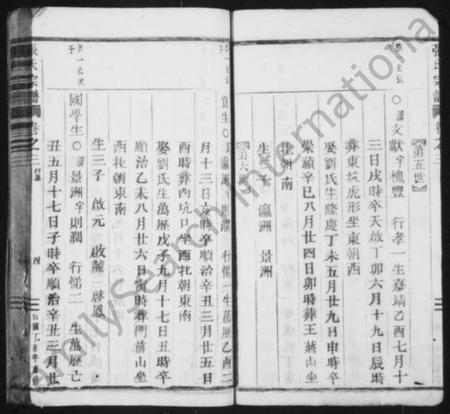 張氏宗譜
第五世
諱文獻字機豐 行孝一生嘉靖乙酉七月十
三日戌時卒天啟丁卯六月十九日辰時
葬東坑虎形坐東朝西
娶劉氏生隆慶丁未五月廿九日申時卒
崇禎辛巳八月廿四日卯時葬王蔣山坐
北朝南
生二子 瀛洲 景洲
第六世
月十三日亥時卒順治辛丑三月廿五日
酉時葬西坑口坐西北朝東南
娶劉氏生萬歷戊子九月十七日丑時卒
順治乙未八月廿六日寅時葬門前山坐
西北朝東南
生三子 啟元 啟龍 啟鳳
國學生 諱景洲字則潤 行悌一 生萬歷亡
丑五月十七日子時卒順治辛丑三月廿
張氏宗譜 卷之三
四
FamilySearch International